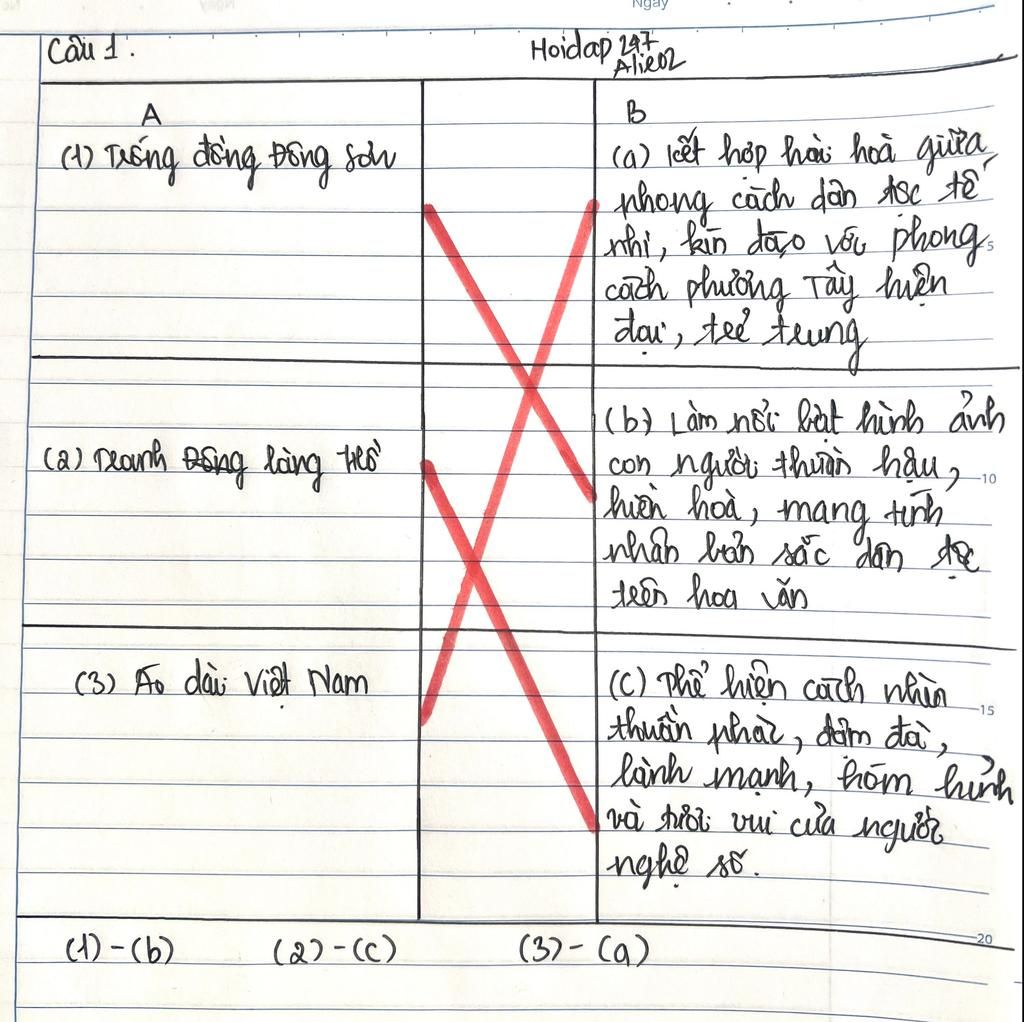 Ngày
Câu 1.
Hoidap 247
Alie02
A
(1) Trống đồng Đông Sơn
B
(a) Kết hợp hài hoà giữa
phong cách dân tộc tế
nhị, kín đáo với phong
cách phương Tây hiện
đại, trẻ trung
5
(2) Tranh Đông làng Hồ
(b) Làm nổi bật hình ảnh
con người thuần hậu,
hiền hoà, mang tính
nhân bản sắc dân tộc
trên hoa văn
10
(3) Áo dài Việt Nam
(c) Thể hiện cách nhìn
thuần phác, đậm đà,
lành mạnh, hóm hỉnh
và tươi vui của người
nghệ sĩ.
15
(1)-(b) (2)-(c) (3)-(a)
20